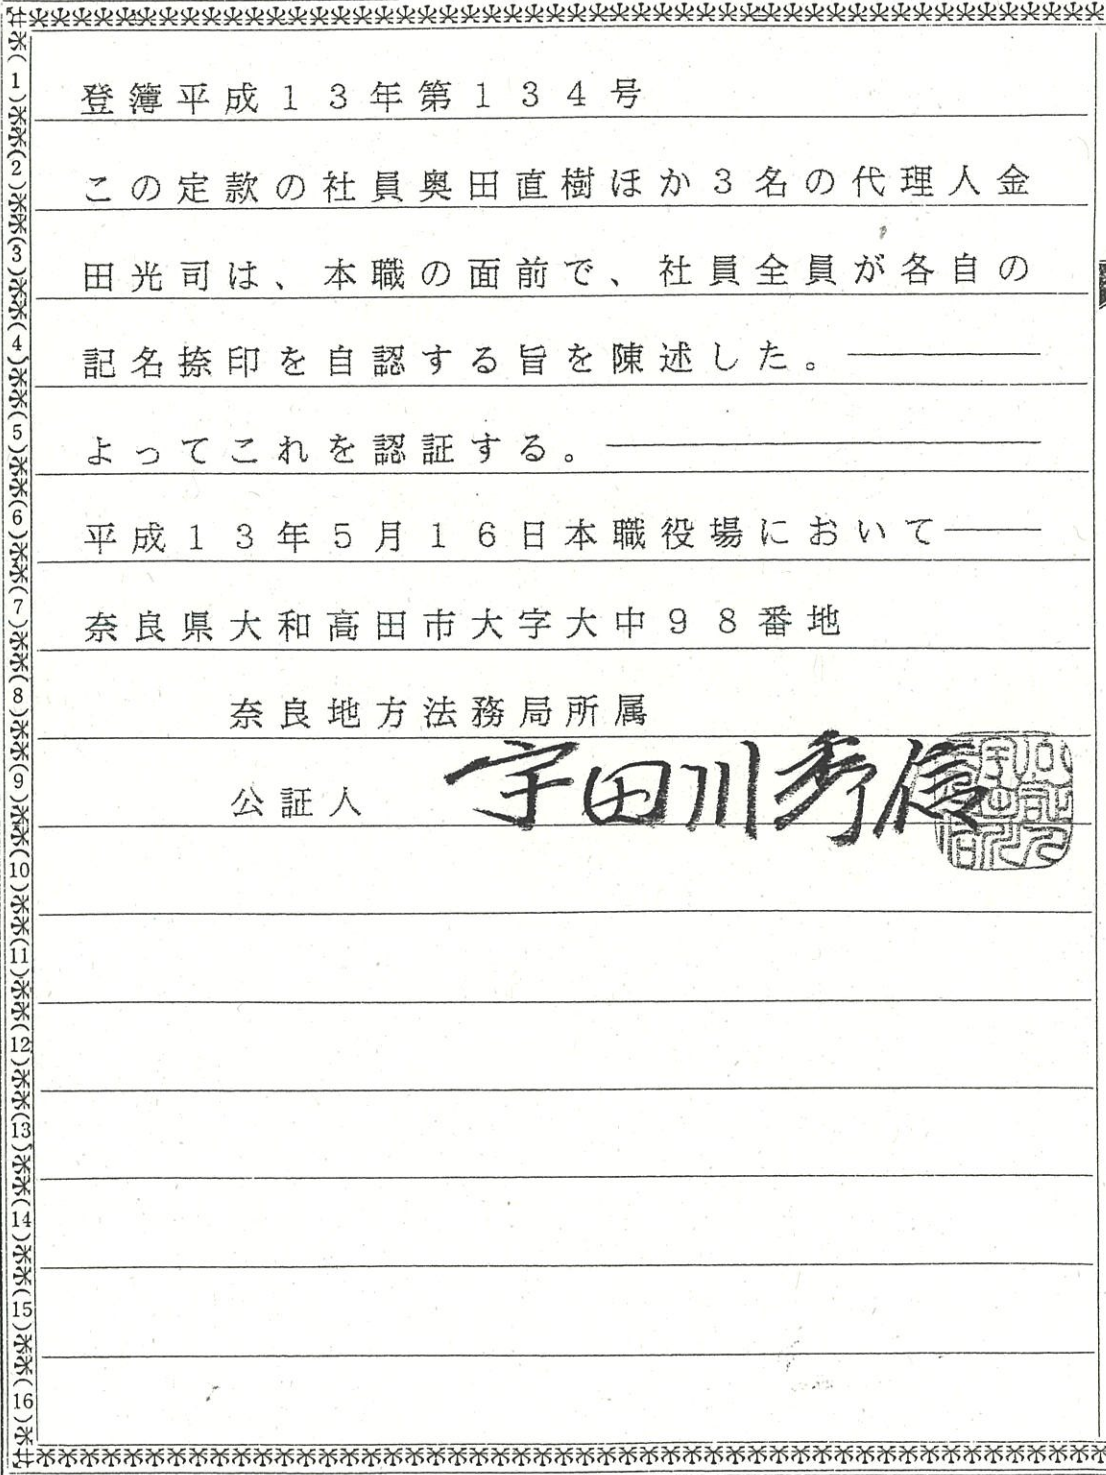 登簿平成13年第134号
この定款の社員奥田直樹ほか3名の代理人金
田光司は、本職の面前で、社員全員が各自の
記名捺印を自認する旨を陳述した。
よってこれを認証する。
平成13年5月16日本職役場において
奈良県大和高田市大字大中98番地
奈良地方法務局所属
公証人 宇田川秀信
(1)
(2)
(3)
(4)
(5)
(6)
(7)
(8)
(9)
(10)
(11)
(12)
(13)
(14)
(15)
(16)